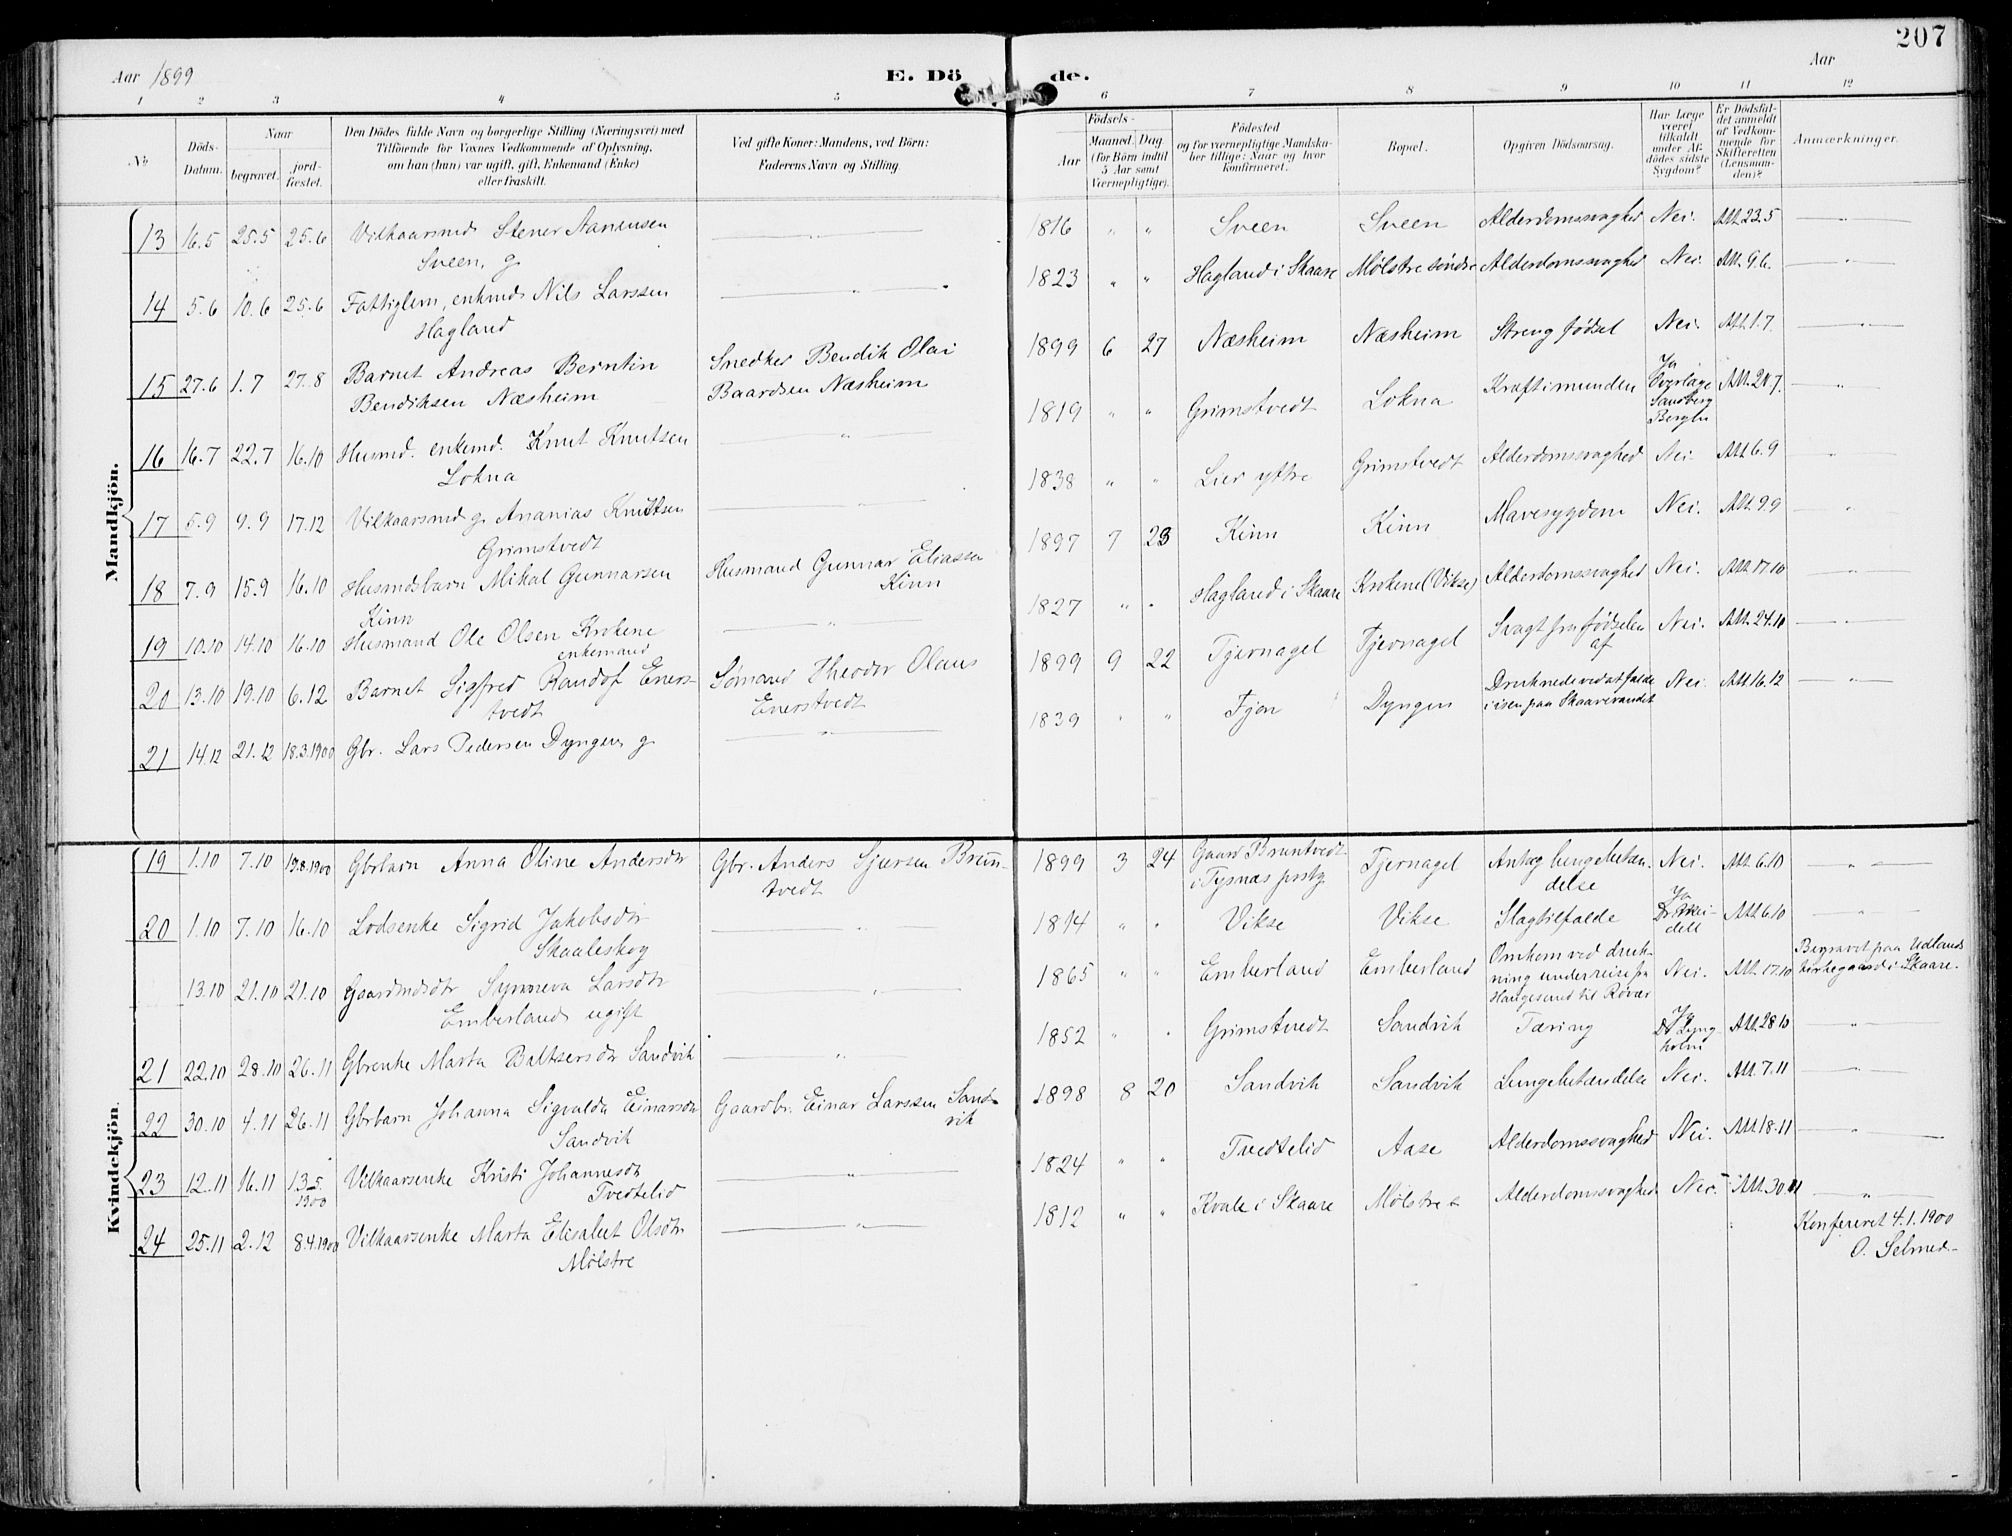 207
Aar 1899
E. Dö de.
Aar
1 2 3 4 5 6 7 8 9 10 11 12
No
Döds-Datum.
Naar
begravet.
jord-fæstet.
Den Dödes fulde Navn og borgerlige Stilling (Næringsvei) med
Tilföiende for Voxnes Vedkommende af Oplysning,
om han (hun) var ugift, gift, Enkemand (Enke)
eller fraskilt.
Ved gifte Koner: Mandens, ved Börn:
Faderens Navn og Stilling.
Födsels-
Aar
Maaned. Dag
(for Börn indtil
5 Aar samt
Værnepligtige).
Födested
og for værnepligtige Mandska-
ber tillige: Naar og hvor
konfirmeret.
Bopæl.
Opgiven Dödsaarsag.
Har Læge
været
tilkaldt
under Af-
dödes sidste
Sygdom?
Er Dödsfal-
det anmeldt
af Vedkom-
mende for
Skifteretten
(Lensman-
den)?
Anmærkninger.
Mandkjön.
13 16.5 25.5 25.6 Vilkaarsmd Stener Aanensen 1816 " " Sveen Sveen Alderdomssvaghed Nei. Att. 23.5
Sveen, g
14 5.6 10.6 25.6 Fattiglem, enkmd. Nils Larssen 1823 " " Hagland i Skaare Mölstre söndre Alderdomssvaghed Nei Att. 9.6.
Hagland
15 27.6 1.7 27.8 Barnet Andreas Berntin Snedker Bendik Olai 1899 6 27 Næsheim Næsheim Streng födsel Nei. Att. 1.7.
Bendiksen Næsheim Baardsen Næsheim
16 16.7 22.7 16.10 Husmd. enkemd. Knut Knutsen 1819 " " Grimstvedt Lokna Kræft i munden Ja Overlæge Sandberg Bergen Att. 20.7.
Lokna
17 5.9 9.9 17.12 Vilkaarsmd g. Ananias Knutsen 1838 " " Lier ytre Grimstvedt Alderdomssvaghed Nei. Att. 6.9
Grimstvedt
18 7.9 15.9 16.10 Husmdsbarn Mikal Gunnarsen Husmand Gunnar Eliassen 1897 7 23 Kinn Kinn Mavesygdom Nei. Att. 9.9
Kinn Kinn
19 10.10 14.10 16.10 Husmand Ole Olsen Krokene 1827 " " Hagland i Skaare Krokene (Vikse) Alderdomssvaghed Nei. Att. 17.10
enkemand
20 13.10 19.10 6.12 Barnet Sigfred Randof Eners- Sömand Theodor Olaus 1899 9 22 Tjernagel Tjernagel Svagt fra födselen af Nei. Att. 24.10
tvedt Enerstvedt
21 14.12 21.12 18.3.1900 Gbr. Lars Pedersen Dyngen, g 1839 " " Fjon Dyngen Druknede ved at falde i isen paa Skaarevandet Nei. Att. 16.12
Kvindekjön.
19 1.10 7.10 19.8.1900 Gbrbarn Anna Oline Andersdtr Gbr. Anders Sjursen Brun- 1899 3 24 Gaard Bruntvedt i Tysnæs prstg. Tjernagel Antag lungebetæn-delse Nei. Att. 6.10
tvedt
20 1.10 7.10 16.10 Lodsenke Sigrid Jakobsdtr 1814 " " Vikse Vikse Slagtilfælde Ja Att. 6.10
Skaaleskog
13.10 21.10 21.10 Gaardmdsdtr Synneva Larsdtr 1865 " " Emberland Emberland Omkom ved druk-ning under reise fra Haugesund til Rövær Nei. Att. 17.10 Begravet paa Udlands kirkegaard i Skaare.
Emberland ugift
21 22.10 28.10 26.11 Gbrenke Marta Baltsersdtr Sandvik 1852 " " Grimstvedt Sandvik Tæring Ja Dr Lyng-holm Att. 28.10
22 30.10 4.11 26.11 Gbrbarn Johanna Sigvalda Einarsdtr Gaardbr. Einar Larssen Sand- 1898 8 20 Sandvik Sandvik Lungebetændelse Nei. Att. 7.11
Sandvik vik
23 12.11 16.11 13.5 1900 Vilkaarsenke Kristi Johannesdtr 1824 " " Tvedtelid Aase Alderdomssvaghed Nei. Att. 18.11
Tvedtelid
24 25.11 2.12 8.4.1900 Vilkaarsenke Marta Elisabet Olsdtr 1812 " " Kvale i Skaare Mölstre Alderdomssvaghed Nei. Att. 30.11
Mölstre
Konfereret 4.1.1900
O. Selmer